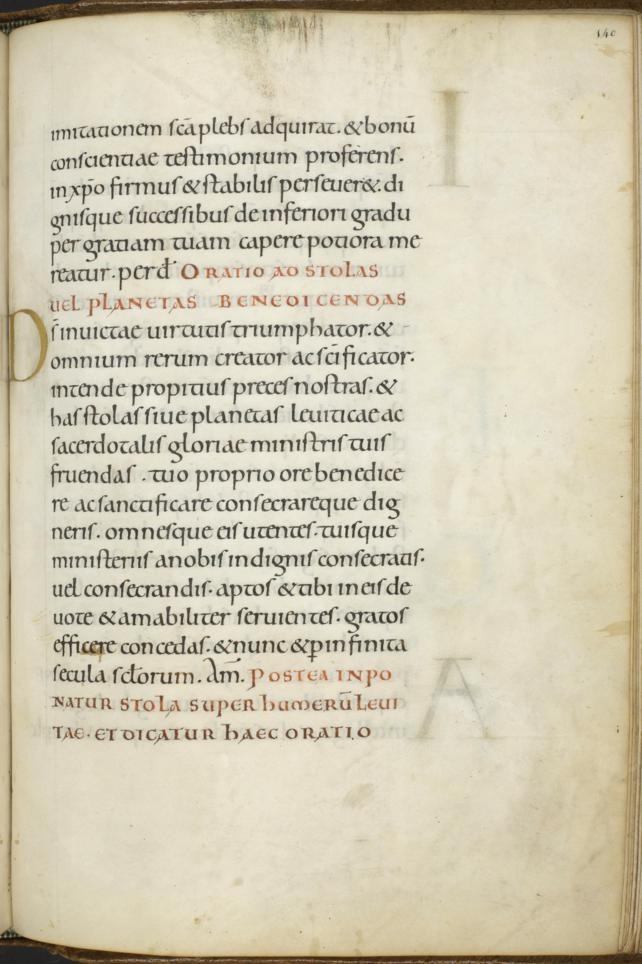 140
imitationem sc̄a plebs adquirat. & bonū
conscientiae testimonium proferens.
in xp̄o firmus & stabilis perseueret. di
gnisque successibus de inferiori gradu
per gratiam tuam capere potiora me
reatur. per dn̄. ORATIO AD STOLAS
UEL PLANETAS BENEDICENDAS
Ds̄ inuictae uirtutis triumphator. &
omnium rerum creator ac sc̄ificator.
intende propitius preces nostras. &
has stolas siue planetas leuiticae ac
sacerdotalis gloriae ministris tuis
fruendas . tuo proprio ore benedice
re ac sanctificare consecrareque dig
neris. omnesque eis utentes. tuisque
ministeriis a nobis indignis consecratis.
uel consecrandis. aptos & tibi in eis de
uote & amabiliter seruientes. gratos
efficere concedas. & nunc & p̱ infinita
secula sc̄lorum. Am̄. POSTEA INPO
NATUR STOLA SUPER hUMERŪ LEUI
TAE. ET DICATUR hAEC ORATIO